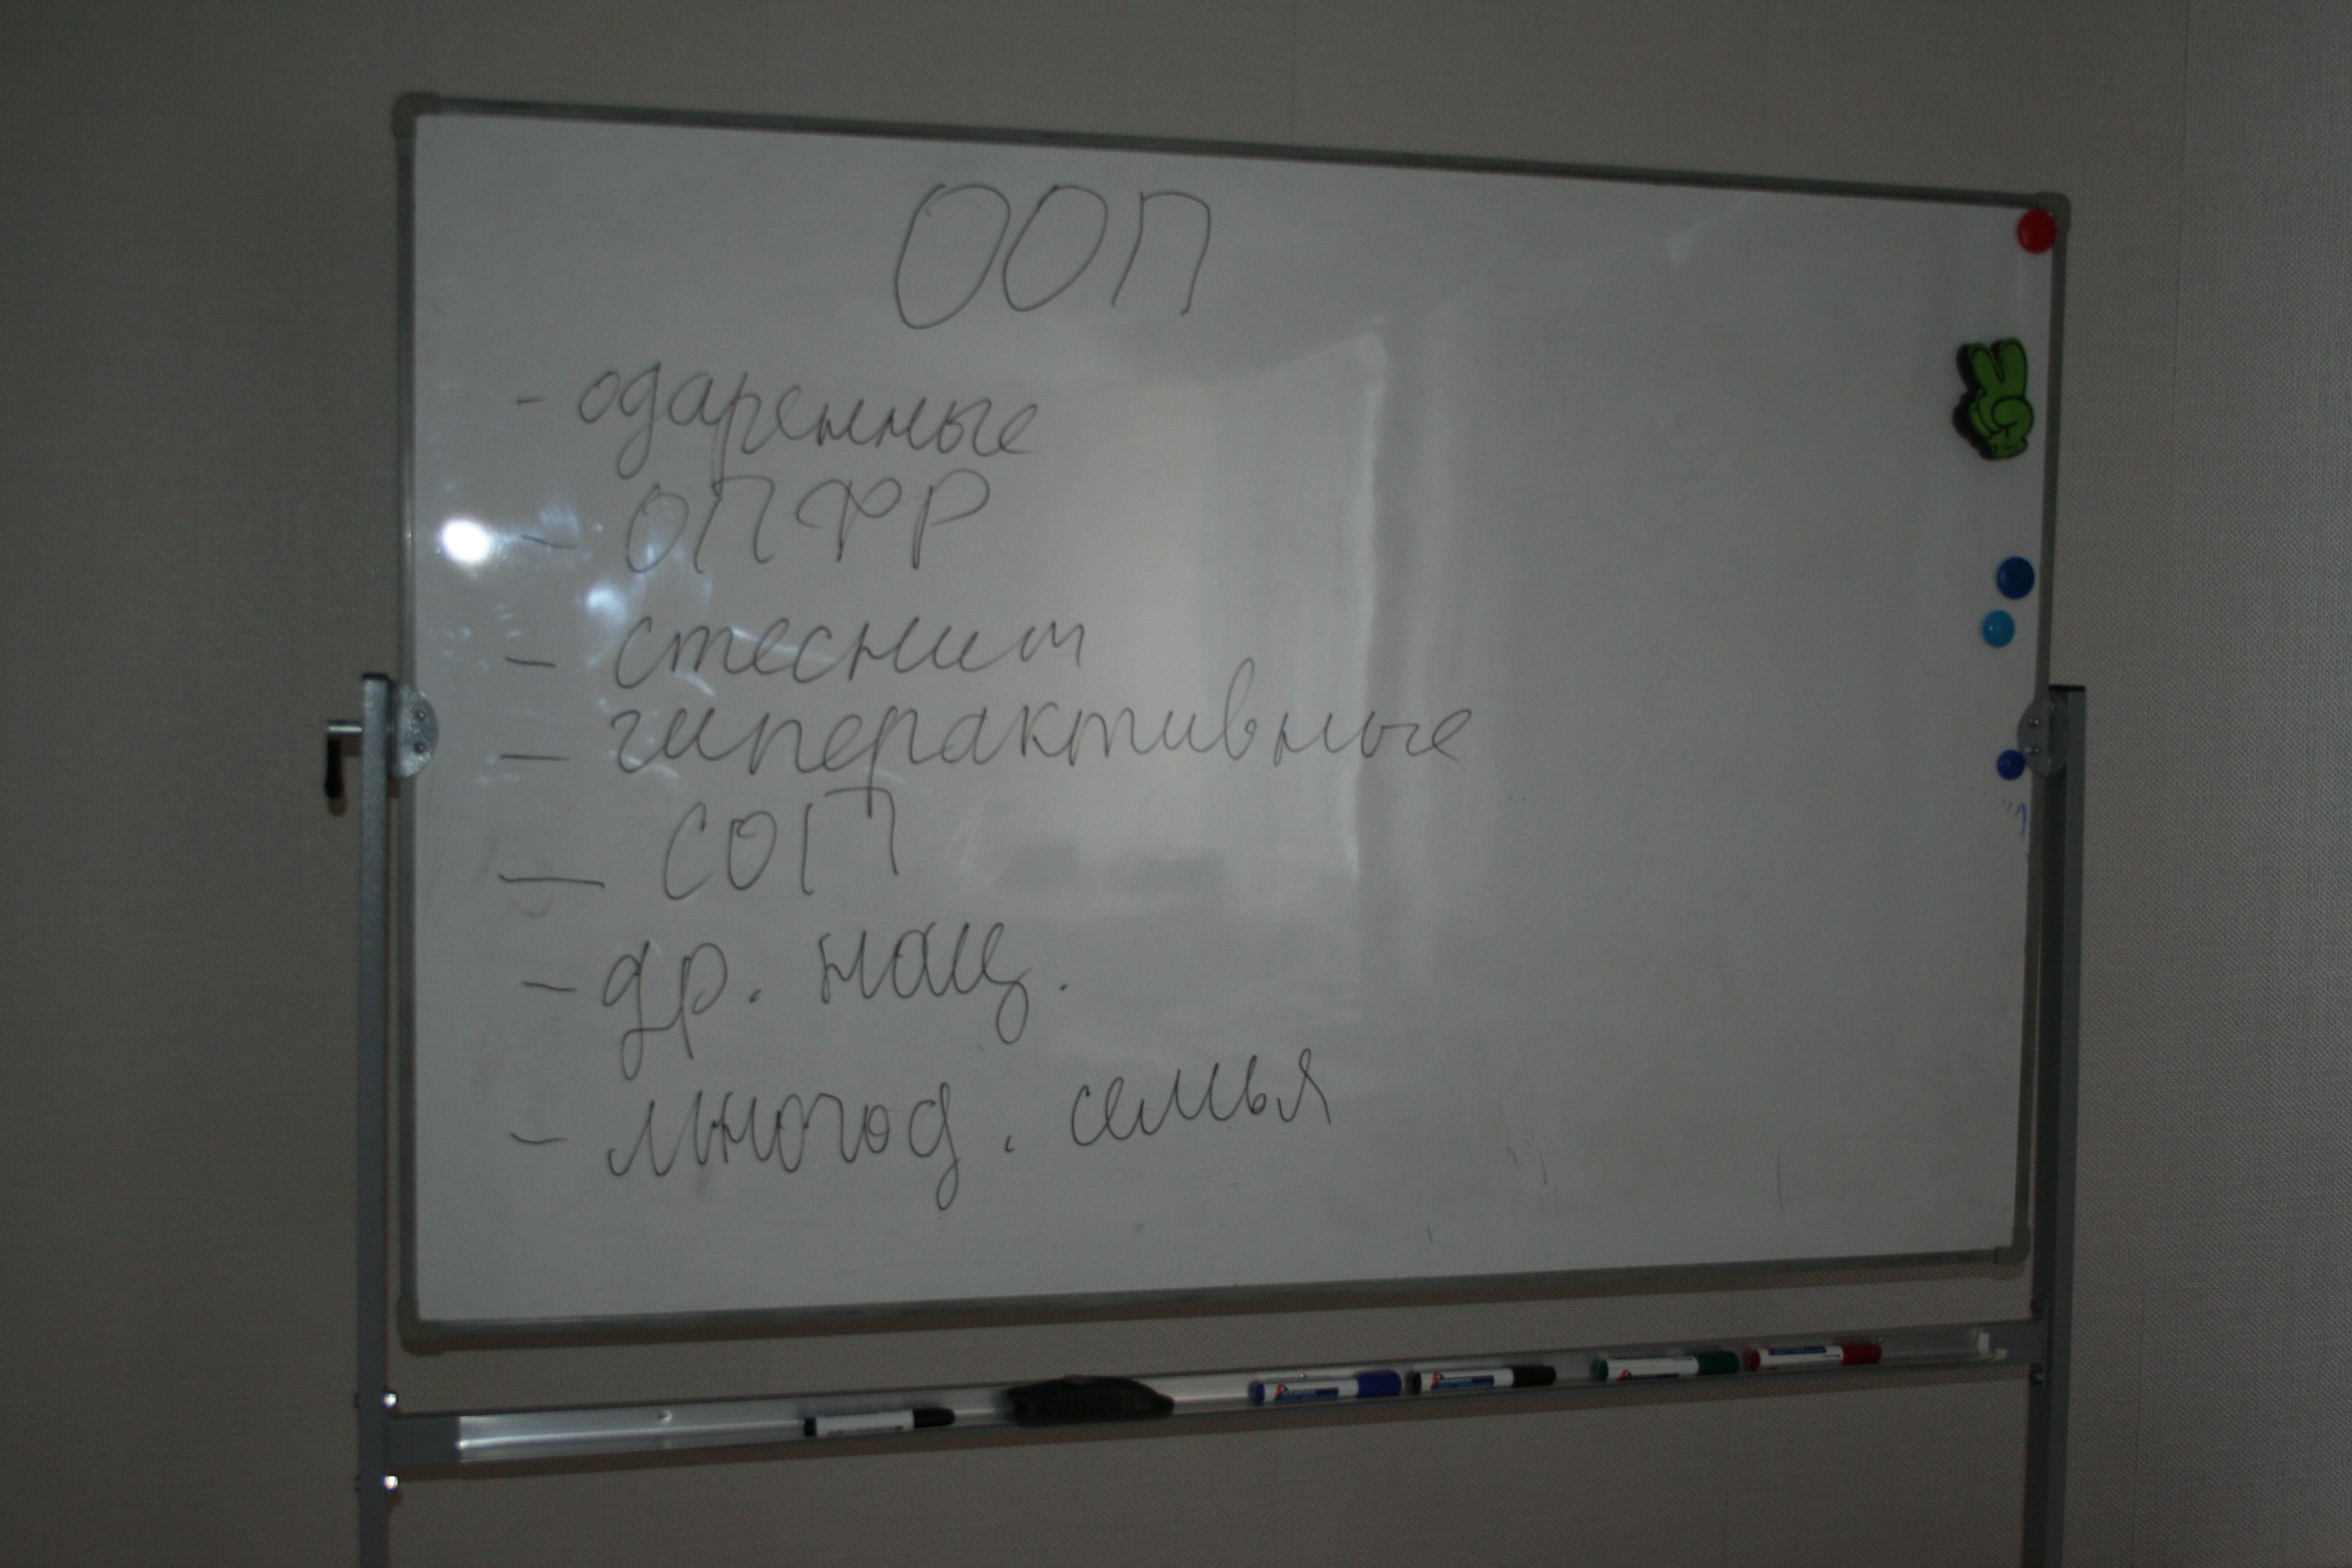 ООП
- одаренные
- ОПФР
- стесним
- гиперактивные
- СОП
- др. нац.
- многод. семья